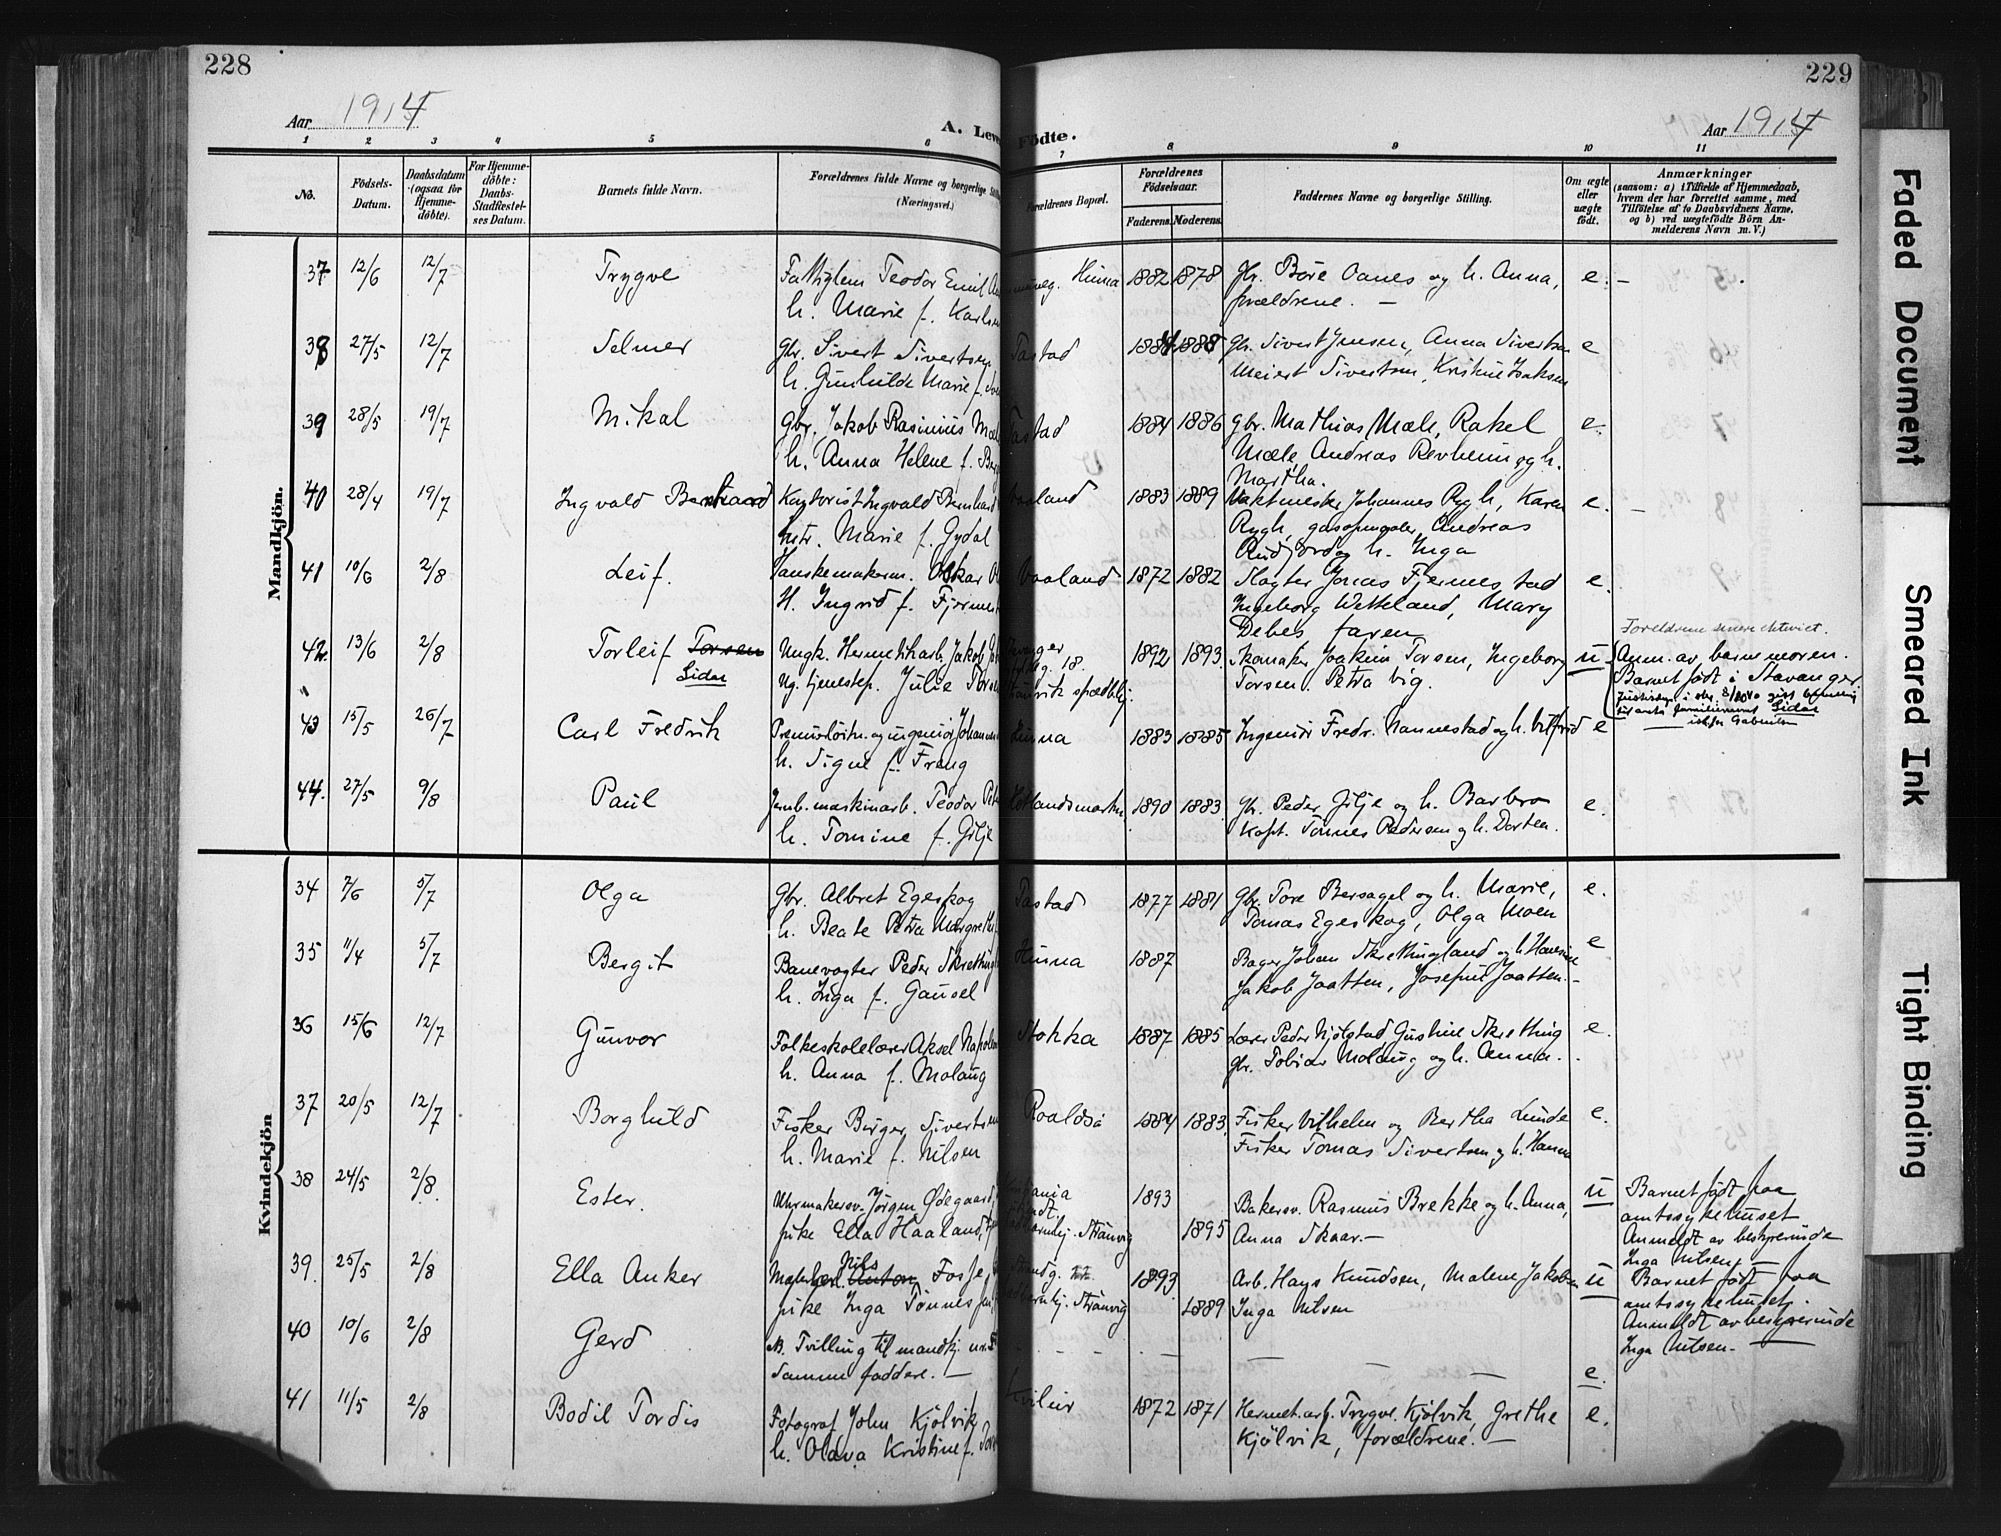 228
229
Aar 1914
A. Leve Födte.
Aar 1914
1 2 3 4 5 6 7 8 9 10 11
No.
Födsels-Datum.
Daabsdatum (ogsaa for Hjemme-döbte).
For Hjemme-döbte: Daabs-Stadfæstel-ses Datum.
Barnets fulde Navn.
Forældrenes fulde Navne og borgerlige Stilling
(Næringsvei.)
Forældrenes Bopæl.
Forældrenes Födselsaar.
Faderens. Moderens.
Faddernes Navne og borgerlige Stilling.
Om ægte eller uægte födt.
Anmærkninger
(saasom: a) i Tilfælde af Hjemmedaab,
hvem der har forrettet samme, med
Tilföielse af to Daabsvidners Navne,
og b) ved uægtefödte Börn An-
melderens Navn m. V.)
Mandkjön.
37 12/6 12/7 Trygve Fattiglem Teodor Emil Hinna 1882 1878 Gbr. Båre Oanes og h. Anna, e. -
h. Marie f. Karlsen forældrene. -
38 27/5 12/7 Selmer Gbr. Sivert Sivertsen Tastad 1884 1888 Gbr. Sivert Jensen, Anna Sivertsen e
h. Gunhilde Marie f. Meiert Sivertsen, Kristine Isaksen
39 28/5 19/7 Mikal Gbr. Jakob Rasmus Mæle Tastad 1884 1886 Gbr. Mathias Mæle, Rakel e.
h. Anna Helene f. Mæle Andreas Revheim og h.
Martha.
40 28/4 19/7 Ingvald Kontorist Ingvald Bernhard Vaaland 1883 1889 Vaktmester Johannes Rygh, Karen e. -
htr. Marie f. Gydal Rygh, Andreas
h. Inga
41 10/6 2/8 Leif. Hanskemakerm. Oskar Vaaland 1872 1882 Slagter Jonas Fjermestad e.
H. Ingrid f. Fjerme Ingeborg Wetteland, Mary
Debes, faren
42 13/6 2/8 Torleif Torsen Ungk. Hermetikarb. Jakob 18. 1892 1893. Skomaker Joakim Torsen, Ingeborg u
Lidar Ug. tjenestep. Julie Torsen Strømvik spædbhj. Torsen. Petra Vig.
Foreldrene senere ektviet.
Anm. av barnemoren.
Barnet født i Stavanger.
43 15/5 26/7 Carl Fredrik Premierløitn. og ingeniør Johannes Hinna 1883 1885 Ingeniør Fredr. Nannestad og h. Vilfrid e
h. Signe f. Freng
44. 27/5 9/8 Paul Jernb. maskinarb. Teodor Hetlandsmarken 1890 1883. Gbr. Peder Gilje og h. Barbro e.
h. Tomine f. Gilje Kapt. Tønnes Pedersen og h. Dorten.
Kvindekjön
34 7/6 5/7 Olga Gbr. Albret Egeskog Tastad 1877 1881 Gbr. Tore Bersagel og h. Marie, e.
h. Beate Petra Margrethe Tomas Egeskog, Olga Moen
35 11/4 5/7 Bergit Banevogter Peder Skretting Hinna 1887 Bager Johan Skrettingland og h. e
h. Inga f. Gausel Jakob Jaatten, Josefine Jaatten. -
36 15/6 12/7 Gunvor Folkeskolelærer Aksel Napoleon Stokka 1887 1885 Lærer Peder Njølstad, Gustine Skretting e.
h. Anna f. Molaug Gbr. Tobias Molaug og h. Anna.
37 20/5 12/7 Borghild Fisker Birger Sivertsen Roaldsø 1884 1883. Fisker Vilhelm og Bertha Lunde e.
h. Marie f. Nilsen Fisker Tomas Sivertsen og h. Hanna
38 24/5 2/8. Ester. Uhrmakersv. Jørgen Ødegaard, 1893 Bakersv. Rasmus Brekke og h. Anna, u Barnet født paa
pike Ella Haaland, Strømvig 1895 Anna Skaar. - amtssykehuset
Anmeldt av bestyrerinde
Inga Nilsen. -
39. 25/5 2/8 Ella Anker Nils Anton Fosse 1893. Arb. Hans Knudsen, Malene Jakobsen u Barnet født paa
pike Inga Tønnes Strømvig 1889 Inga Nilsen amtssykehuset.
Anmeldt av bestyrerinde
Inga Nilsen. -
40 10/6 2/8 Gerd NB. Tvilling til mandkj. nr. - - - -
Samme faddere. - e.
41 11/5 2/8 Bodil Tordis Fotograf John Kjölvik Hvilur 1872 1871 Hermet.arb. Trygve Kjölvik, Grethe e.
h. Olava Kristine f. Kjölvik, forældrene. -
Faded Document
Smeared Ink
Tight Binding